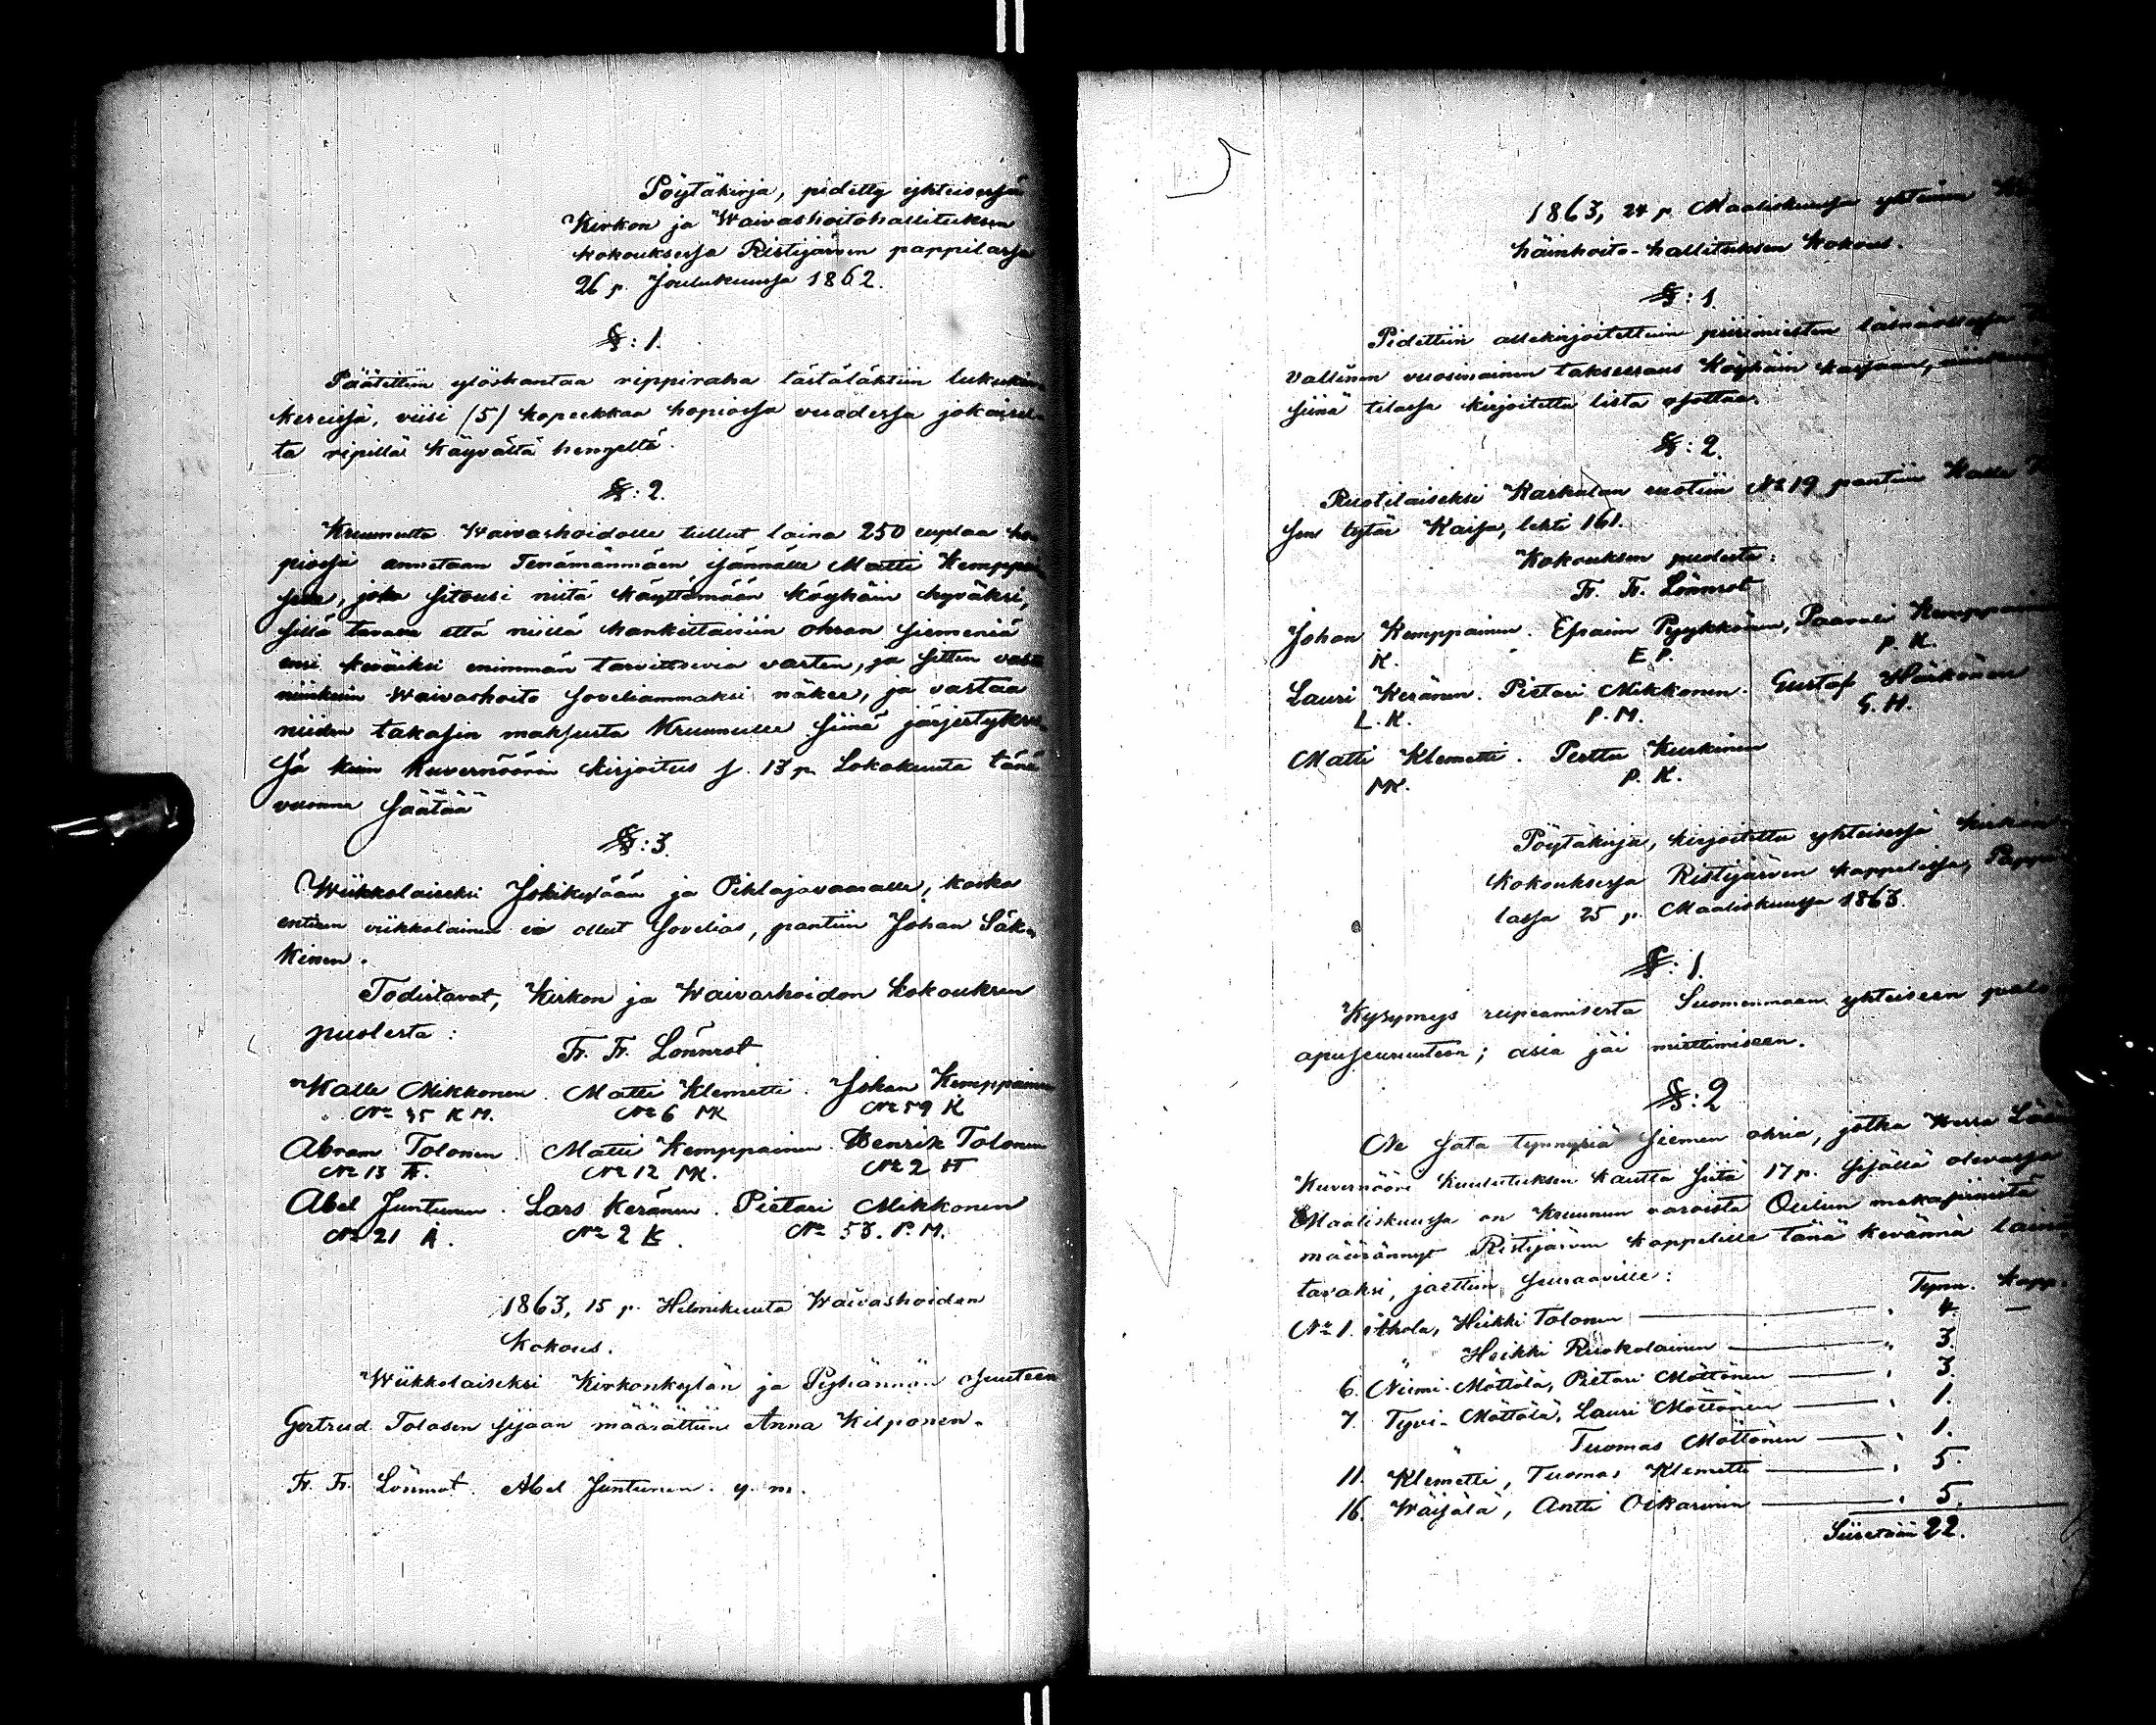 Pöytäkirja, pidetty yhteisessä
Kirkon ja Waivashoitohallituksen
kokouksessa Ristijärven pappilassa
26 p. Joulukuussa 1862.
§: 1.
Päätettiin ylöskantaa rippiraha tästäläktiin lukukin-
kereissä, viisi (5) kopeekkaa hopiassa vuodessa jokaisel-
ta ripillä käyvältä hengeltä.
§: 2.
Kruunulta Waivashoidolle tullut laina 250 ruplaa ho-
piossa annetaan Tenämänmäen isännälle Matti Kemppai-
selle, joka sitousi niitä käyttämään köyhäin hyväksi,
sillä tavana että niillä hankittaisiin ohran siemeniä
ensi kevääksi enimmän tarvitsevia varten, ja sitten
niinkuin Waivashoito soveliammaksi näkee, ja vastaa
niiden takasin maksusta Kruunulle siinä järjestykses-
sä kuin Kuvernöörin kirjoitus s. 13 p. Lokakuuta tänä
vuonna säätää
§: 3.
Wiikkolaiseksi Jokikylään ja Pihlajavaaralle, koska
entinen viikkolainen ei ollut sovelias, pantiin Johan Säk-
kinen.
Todistavat, Kirkon ja Waivashoidon kokouksen
puolesta:
Fr. Fr. Lönnrot
Kalle Mikkonen. Matti Klemetti. Johan Kemppainen
№ 35 K M. № 6 MK № 59 K
Abram Tolonen. Matti Kemppainen. Henrik Tolonen
№ 13 A. № 12 MK. № 2 H
Abel Juntunen. Lars Keränen. Pietari Mikkonen
№ 21 A. № 2 K. № 53. P. M.
1863, 15 p. Helmikuuta Waivashoidon
kokous.
Wiikkolaiseksi Kirkonkylän ja Pyhännän osuuteen
Gertrud Tolosen sijaan määrättiin Anna Kilponen.
Fr. Fr. Lönnrot. Abel Juntunen. y. m.
1863, 24 p. Maaliskuussa yhteinen
häinhoito-hallituksen kokous.
§: 1.
Pidettiin allekirjoitettuin piirimiesten läsnäollessa
vallinen vuosinainen takseeraus Köyhäin kassaan,
siinä tilassa kirjoitettu lista osottaa.
§: 2.
Ruotilaiseksi Karhulan ruotiin № 19 pantiin Kalle
sen tytär Kaisa, lehti 161.
Kokouksen puolesta:
Fr. Fr. Lönnrot
Johan Kemppainen. Efraim Pyykkönen, Paavali Kemppainen
K. E P. P. K.
Lauri Keränen. Pietari Mikkonen. Gustaf Härkönen
L. K. P. M. G. H.
Matti Klemetti. Perttu Kurkinen
MK. P. K.
Pöytäkirja, kirjoitettu yhteisessä kirkon
kokouksessa Ristijärven kappelissa, Pappi-
lassa 25 p. Maaliskuussa 1863.
§: 1.
Kysymys rupeamisesta Suomenmaan yhteiseen palo-
apuseurauteen; asia jäi miettimiseen.
§: 2
Ne sata tynnyriä siemen ohria, jotka Herra Läänin
Kuvernööri kuulutuksen kautta siitä 17 p. sisällä olevassa
Maaliskuussa on Kruunun varoista Oulun makasiinista
määrännyt Ristijärven kappelille tänä kevännä lainat-
tavaksi, jaettiin seuraaville:
Tynn. Kapp.
№ 1. Ahola, Heikki Tolonen — „ 4. —
„ Heikki Ruokolainen — „ 3.
6. Niemi-Möttölä, Pietari Möttönen — „ 3.
7. Tyvi-Möttölä, Lauri Möttönen — „ 1.
„ Tuomas Möttönen — „ 1.
11. Klemetti, Tuomas Klemetti — „ 5.
16. Wäisälä, Antti Oikarinen — „ 5.
Siiretään 22.